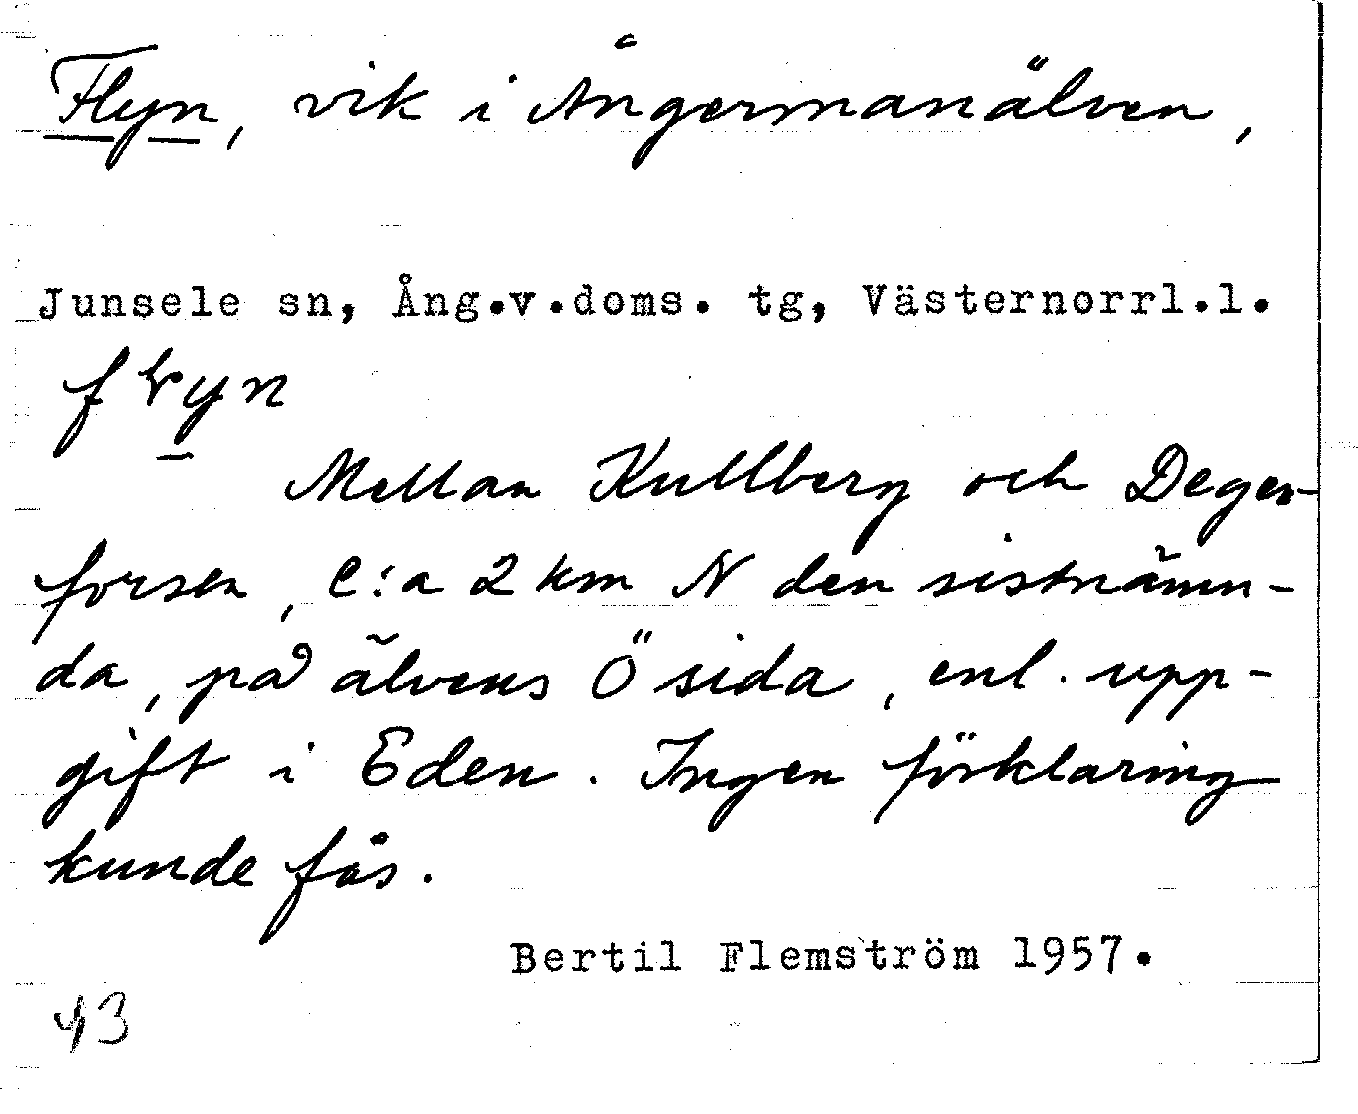 Flyn, vik i Ångermanälven,
Junsele sn, Ång.v.doms. tg, Västernorrl.l.
Mellan Kullberg och Deger-
forsen, c:a 2 km N den sistnämn-
da, på älvens Ö sida, enl. upp-
gift i Eden. Ingen förklaring
kunde fås.
Bertil Flemström 1957.
43